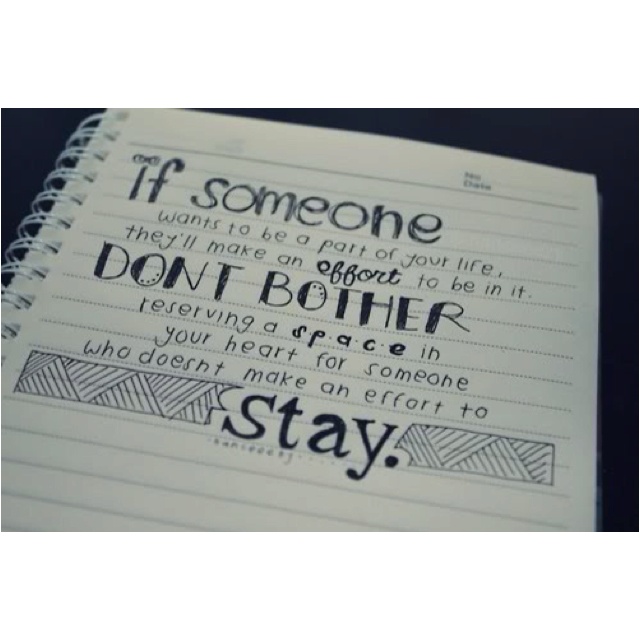 No
Date
if someone
wants to be a part of your life,
they'll make an effort to be in it.
DONT BOTHER
reserving a space in
your heart for someone
who doesnt make an effort to
stay.